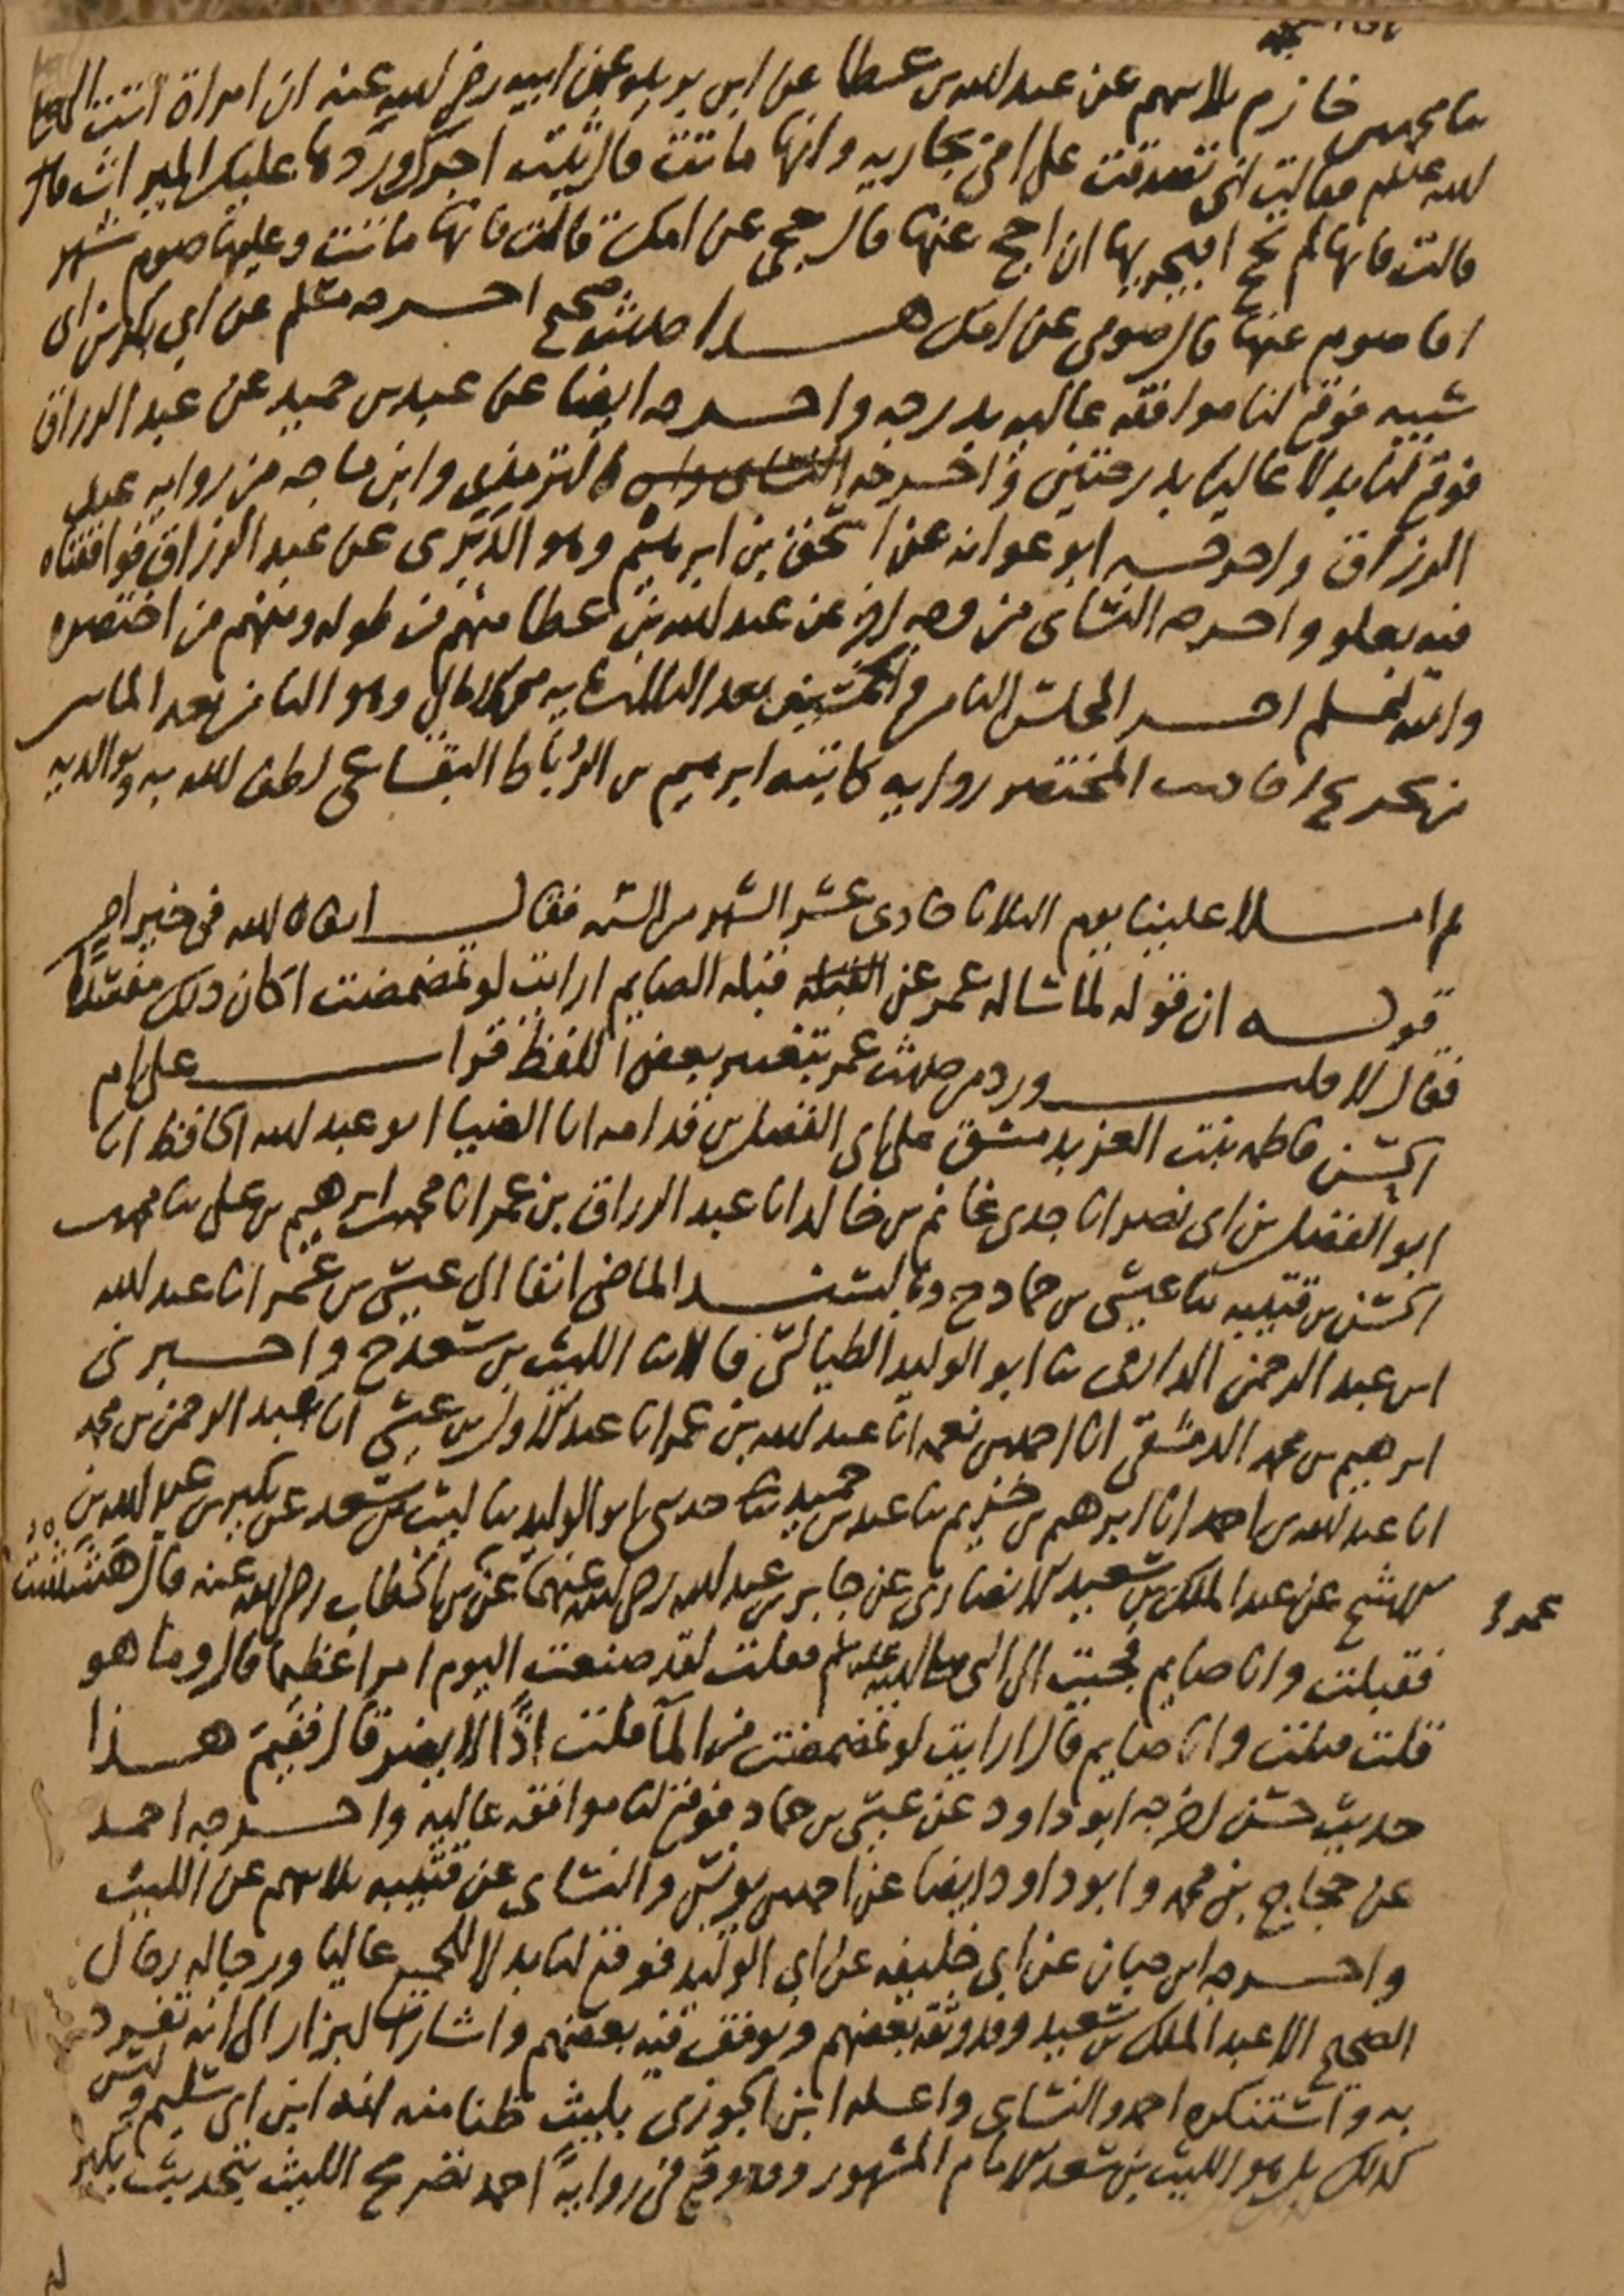 خازم ثلاثتهم عن عبد الله بن عطا عن ابن بريده عن ابيه رضي الله عنه ان امراة اتت النبي
الله عليه وسلم فقالت اني تصدقت على امي بجاريه وانها ماتت قال ثبت اجرك وردها عليك الميراث قال
قالت فانها لم تحج افيجزيها ان احج عنها قال حجي عن امك قالت فانها ماتت وعليها صوم شهر
افاصوم عنها قال صومي عن امك هذا حديث صحيح اخرجه مسلم عن ابي بكر بن ابي
شيبه فوقع لنا موافقه عاليه بدرجه واخرجه ايضا عن عبد بن حميد عن عبد الرزاق
فوقع لنا بدلا عاليا بدرجتين واخرجه الترمذي وابن ماجه من روايه عبد
الرزاق واخرجه ابو عوانه عن اسحق بن ابرهيم وهو الدبري عن عبد الرزاق فوافقناه
فيه بعلو واخرجه النسائي من وجه اخر عن عبد الله بن عطا منهم من طوله ومنهم من اختصره
والله اعلم اخر المجلس الثامن والخمسين بعد الثلاثمايه من الامالي وهو الثامن بعد الماس
من تخريج احاديث المختصر روايه كاتبه ابرهيم بن الرباط البقاعي لطف الله به وبوالديه
ثم املا علينا يوم الثلاثا حادي عشر الشهر من السنه فقال ابقاه الله في خير احر
قوله ان قوله لما ساله عمر عن القبله قبله الصايم ارايت لو تمضمضت اكان ذلك مفسدا
فقال لا قلت ورد من حديث عمر بتغيير بعض اللفظ قرات على ام
الحسن فاطمه بنت العز بدمشق على ابي الفضل بن قدامه انا الضيا ابو عبد الله الحافظ انا
ابو الفضل بن ابي نصر انا جدي غانم بن خالد انا عبد الرزاق بن عمر انا محمد بن ابرهيم بن علي ثنا محمد بن
الحسن بن قتيبه ثنا عيسى بن حماد ح وبالسند الماضي انفا الى عيسى بن عمر انا عبد الله
ابن عبد الرحمن الدارمي ثنا ابو الوليد الطيالسي قالا ثنا الليث بن سعد ح واخبرني
ابرهيم بن محمد الدمشقي انا احمد بن نعمه انا عبد الله بن عمر انا عبد الاول بن عيسى انا عبد الرحمن بن محمد
انا عبد الله بن احمد انا ابرهيم بن خزيم ثنا عبد بن حميد حدثني ابو الوليد ثنا ليث بن سعد عن بكير بن عبد الله بن
الاشج عن عبد الملك بن سعيد الانصاري عن جابر بن عبد الله رضي الله عنهما عن بن الخطاب رضي الله عنه قال هششت
عمر
فقبلت وانا صايم فجيت الى النبي صلى الله عليه وسلم فقلت لقد صنعت اليوم امرا عظيما قال وما هو
قلت قبلت وانا صايم قال ارايت لو تمضمضت من المآ قلت اذًا لا يضر قال ففيم هذا
حديث حسن اخرجه ابو داود عن عيسى بن حماد فوقع لنا موافقه عاليه واخرجه احمد
عن حجاج بن محمد وابو داود ايضا عن احمد بن يونس والنسائي عن قتيبه ثلاثتهم عن الليث
واخرجه ابن حبان عن ابي خليفه عن ابي الوليد فوقع لنا بدلا للجميع عاليا ورجاله رجال
الصحيح الا عبد الملك بن سعيد وقد وثقه بعضهم وتوقف فيه بعضهم واشار البزار الى انه تفرد
به واستنكره احمد والنسائي واعله ابن الجوزي بليث ظنا منه انه ابن ابي سليم وليس
كذلك بل هو الليث بن سعد الامام المشهور وقد وقع في رواية احمد تصريح الليث بتحديث بكير
له